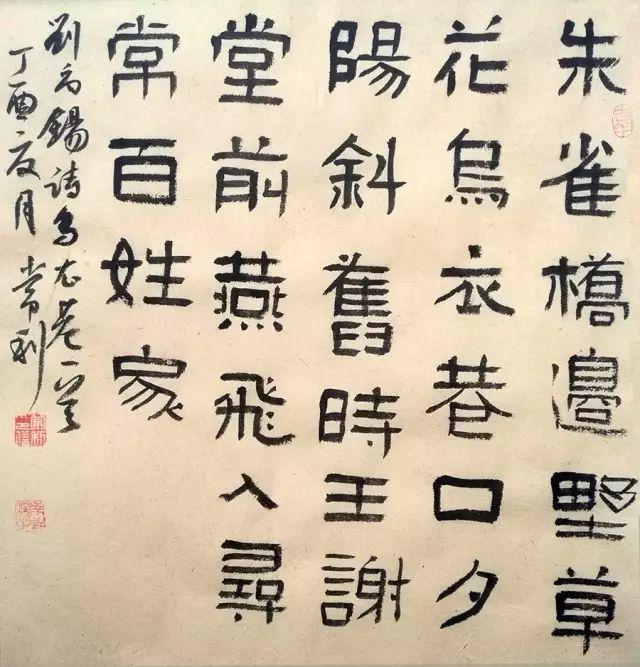 朱雀橋邊野草
花烏衣巷口夕
陽斜舊時王謝
堂前燕飛入尋
常百姓家
劉禹錫詩烏衣巷一首
丁酉夏月 常利